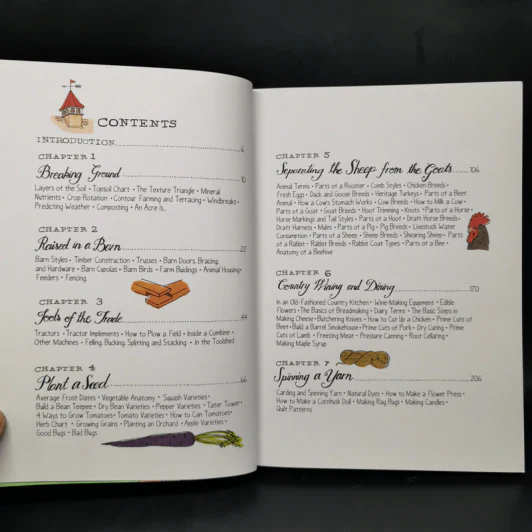 CONTENTS
INTRODUCTION 6
CHAPTER 1
Breaking Ground 10
Layers of the Soil • Topsoil Chart • The Texture Triangle • Mineral
Nutrients • Crop Rotation • Contour Farming and Terracing • Windbreaks •
Predicting Weather • Composting • An Acre Is...
CHAPTER 2
Raised in a Barn 22
Barn Styles • Timber Construction • Trusses • Barn Doors, Bracing,
and Hardware • Barn Cupolas • Barn Birds • Farm Buildings • Animal Housing •
Feeders • Fencing
CHAPTER 3
Tools of the Trade 44
Tractors • Tractor Implements • How to Plow a Field • Inside a Combine •
Other Machines • Felling, Bucking, Splitting and Stacking • In the Toolshed
CHAPTER 4
Plant a Seed 66
Average Frost Dates • Vegetable Anatomy • Squash Varieties •
Build a Bean Teepee • Dry Bean Varieties • Pepper Varieties • Tater Tower •
4 Ways to Grow Tomatoes • Tomato Varieties • How to Can Tomatoes •
Herb Chart • Growing Grains • Planting an Orchard • Apple Varieties •
Good Bugs • Bad Bugs
CHAPTER 5
Separating the Sheep from the Goats 106
Animal Terms • Parts of a Rooster • Comb Styles • Chicken Breeds •
Fresh Eggs • Duck and Goose Breeds • Heritage Turkeys • Parts of a Beef
Animal • How a Cow's Stomach Works • Cow Breeds • How to Milk a Cow •
Parts of a Goat • Goat Breeds • Hoof Trimming • Knots • Parts of a Horse •
Horse Markings and Tail Styles • Parts of a Hoof • Draft Horse Breeds •
Draft Harness • Mules • Parts of a Pig • Pig Breeds • Livestock Water
Consumption • Parts of a Sheep • Sheep Breeds • Shearing Sheep • Parts
of a Rabbit • Rabbit Breeds • Rabbit Coat Types • Parts of a Bee •
Anatomy of a Beehive
CHAPTER 6
Country Wining and Dining 170
In an Old-Fashioned Country Kitchen • Wine-Making Equipment • Edible
Flowers • The Basics of Breadmaking • Dairy Terms • The Basic Steps in
Making Cheese • Butchering Knives • How to Cut Up a Chicken • Prime Cuts of
Beef • Build a Barrel Smokehouse • Prime Cuts of Pork • Dry Curing • Prime
Cuts of Lamb • Freezing Meat • Pressure Canning • Root Cellaring •
Making Maple Syrup
CHAPTER 7
Spinning a Yarn 206
Carding and Spinning Yarn • Natural Dyes • How to Make a Flower Press •
How to Make a Cornhusk Doll • Making Rag Rugs • Making Candles •
Quilt Patterns